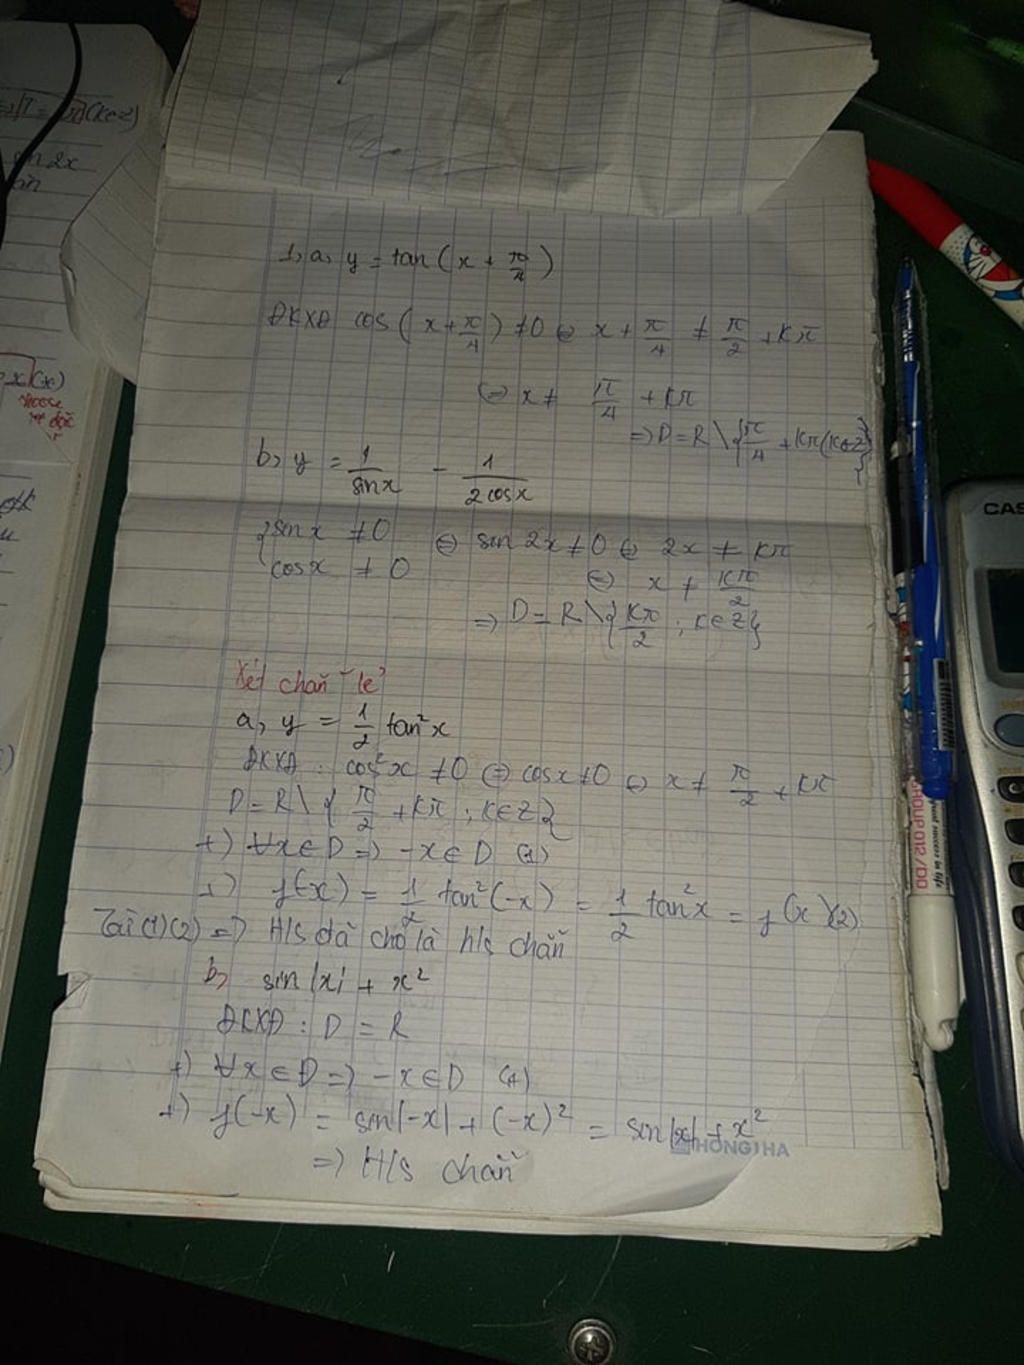 1, a, y = tan(x + π/4)
ĐKXĐ cos(x + π/4) ≠ 0 ⇔ x + π/4 ≠ π/2 + Kπ
⇔ x ≠ π/4 + Kπ
=> D = R \ {π/4 + Kπ (K∈Z)}
b, y = 1/sinx - 1/2cosx
{ sinx ≠ 0 ⇔ sin 2x ≠ 0 ⇔ 2x ≠ Kπ
cosx ≠ 0 ⇔ x ≠ Kπ/2
=> D = R \ {Kπ/2 ; K∈Z}
Xét chẵn lẻ
a, y = 1/2 tan²x
ĐKXĐ : cos²x ≠ 0 ⇔ cosx ≠ 0 ⇔ x ≠ π/2 + Kπ
D = R \ {π/2 + Kπ ; K∈Z}
+) ∀x∈D => -x∈D (1)
+) f(-x) = 1/2 tan²(-x) = 1/2 tan²x = f(x) (2)
Từ (1)(2) => H/s đã cho là h/s chẵn
b, sin|x| + x²
ĐKXĐ : D = R
+) ∀x∈D => -x∈D (1)
+) f(-x) = sin|-x| + (-x)² = sin|x| + x²
=> H/s chẵn
HONG HA
CAS
GROUP 012/DO
(K∈Z)
sin 2x